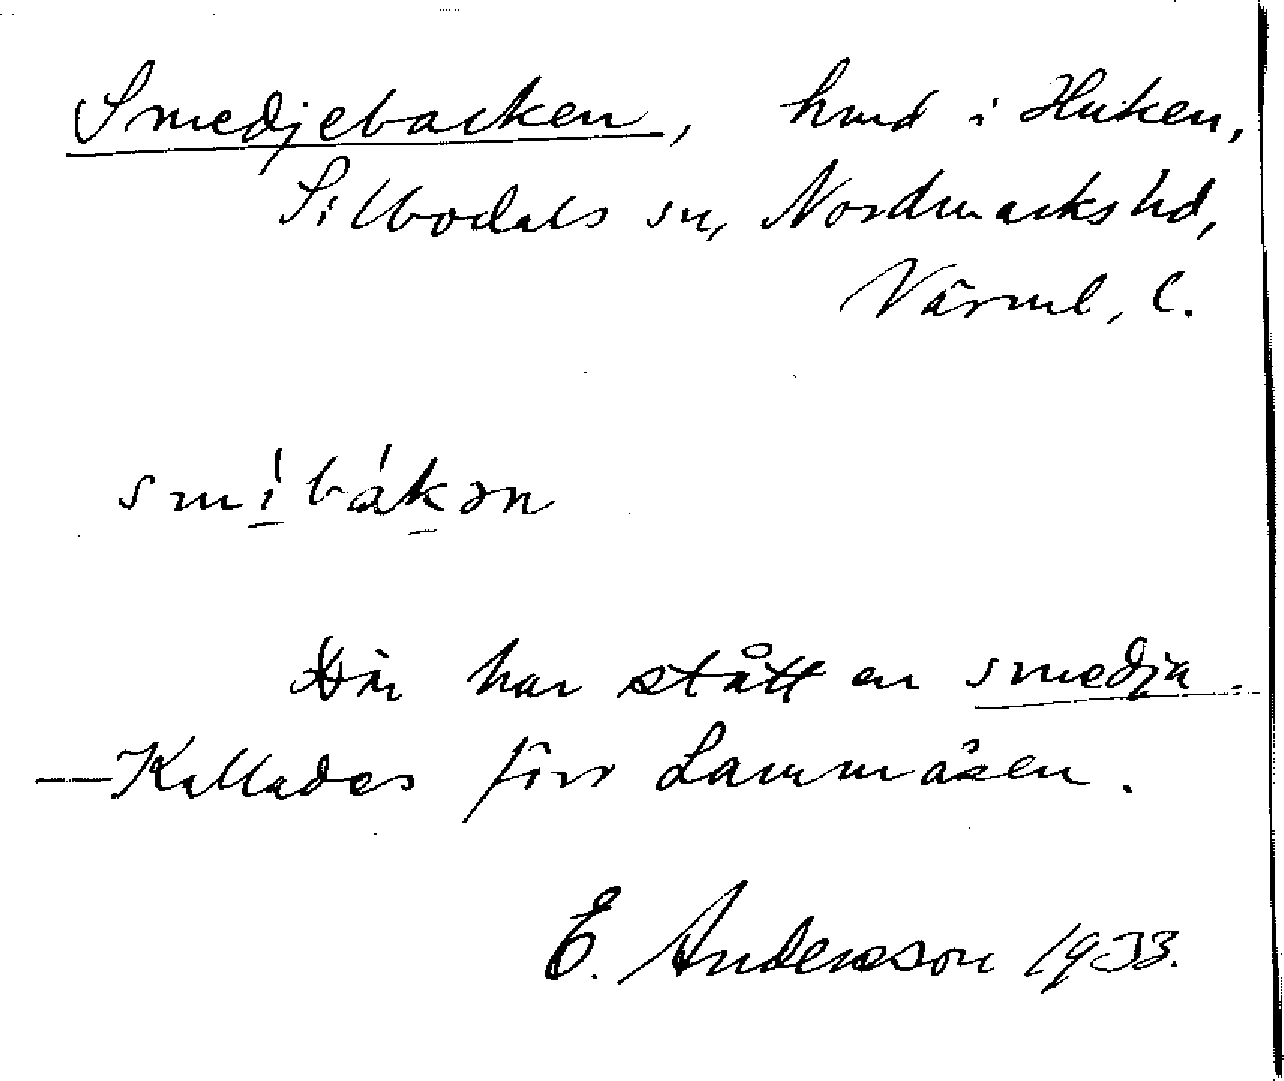 Smedjebacken, hmd i Huken,
Silbodals sn, Nordmarks hd,
Värml. l.
smí̠bák̠ən
Där har stått en smedja.
— Kallades förr Lammåsen.
E. Andersson 1933.